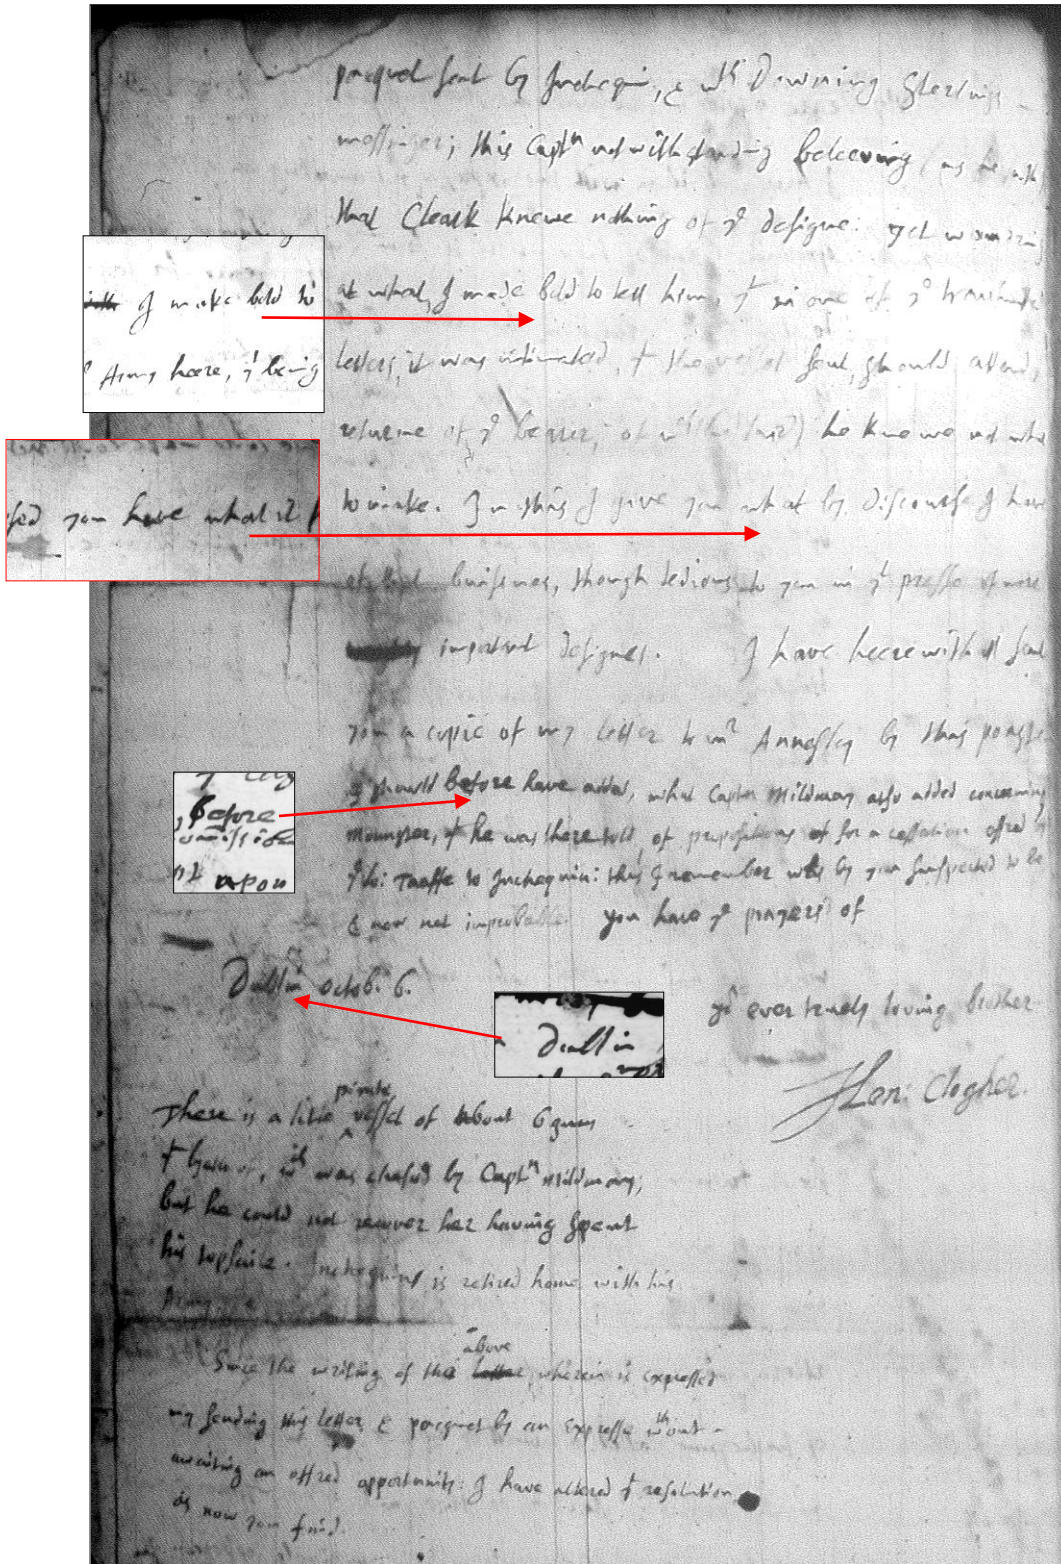 pacquet sent by Inchequin, & wth Downing Sterlings
messinger; this Captn notwithstanding beleeving (as he
that Clearke knewe nothing of ye designe: yet wondring
at what, I made bold to tell him, yt in one of ye
I make bold to
letters, it was intimated, yt the vessel sent, should attend
Army heere, yt being
returne of ye bearer, of wch he knewe not what
to make. In this I give you what by discourse I have
you have what it
of that buisines, though tedious to you in yt presse of more
important designes. I have heerewithall sent
you a copie of my letter to mr Annesley by this
I should before have added, what Captn Mildmay also added concerning
before
Mounster, yt he was there told, of propositions for a cessation offred by
upon
ye lo: Taaffe to Inchequin: this I remember was by you suspected to be
& now not improbable. you have ye prayers of
Dublin Octob. 6.
yr ever truely loving brother
Dublin
Hen: Clogher.
private
There is a litle vessel of about 6 guns
wch was chased by Captn Mildmay,
but he could not recover her having spent
his topsaile. Inchequine is retired home with his
Army
above
Since the writing of the letter, wherein is expressed
my sending this letter & pacquet by an expresse wthout
awaiting an offred opportunity: I have altered yt resolution
as now you find.